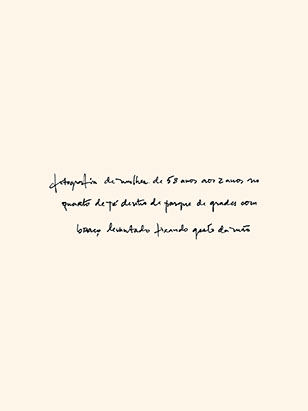 fotografia de mulher de 58 anos aos 2 anos no
quarto de pé dentro de parque de grades com
braço levantado fixando gesto da mão